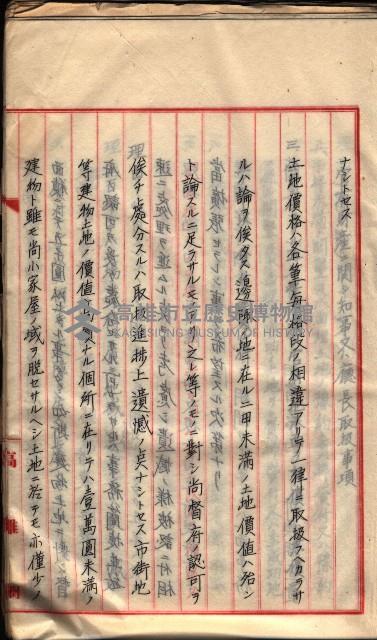 ナシトセス
三、土地價格ハ各筆每格段ノ相違アリテ一律ニ取扱フヘカラサ
ルハ論ヲ俟タス邊陬ノ地ニ在ル二甲未滿ノ土地價值ハ殆ン
ト論スルニ足ラサルモノアリ之レ等ノモノニ對シ尚督府ノ認可ヲ
俟チ處分スルハ取扱進捗上遺憾ノ点ナシトセス市街地
等建物土地ノ價值ナル個所ニ在リテハ壹萬圓未滿ノ
建物ト雖モ尚小家屋ノ域ヲ脫セサルヘシ土地ニ於テモ亦僅少ノ
高雄市立歷史博物館
KAOHSIUNG MUSEUM OF HISTORY
高雄